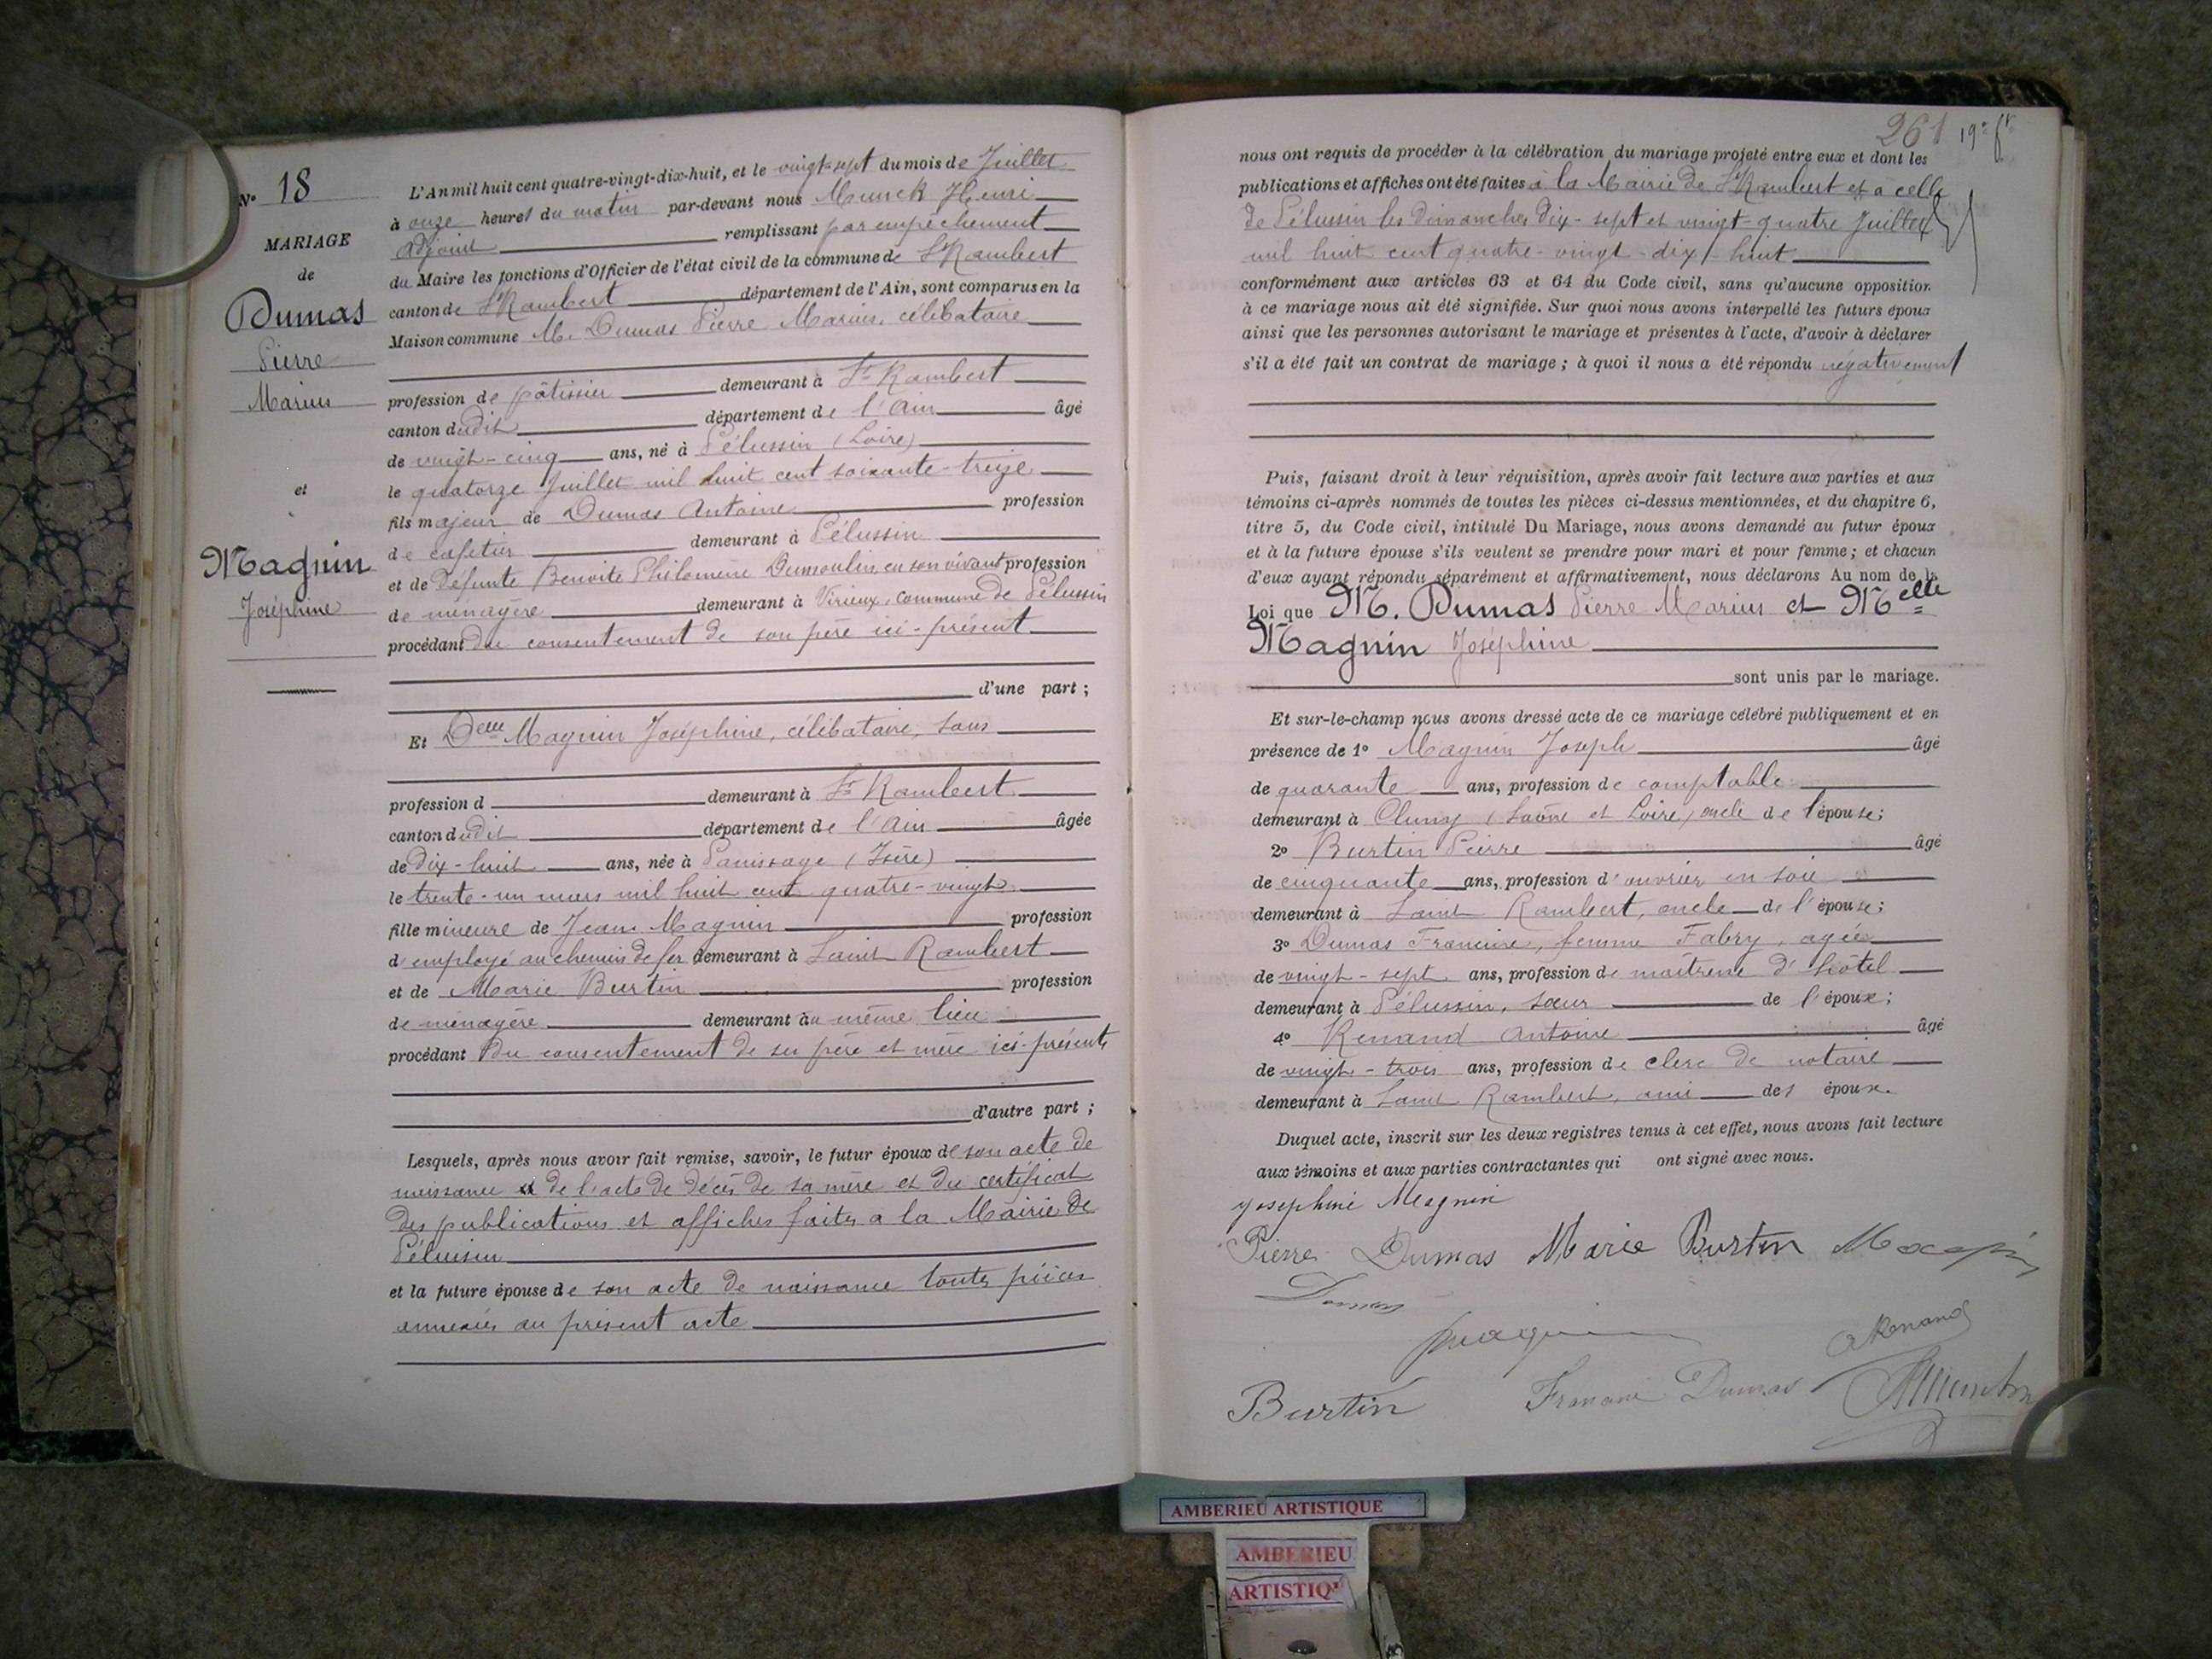 N° 18
MARIAGE
de
Dumas
Pierre
Marius
et
Magnin
Joséphine
L'An mil huit cent quatre-vingt-dix-huit, et le vingt-sept du mois de Juillet
à onze heures du matin par-devant nous Munck Henri
adjoint remplissant par empêchement
du Maire les fonctions d'Officier de l'état civil de la commune de St Rambert
canton de St Rambert département de l'Ain, sont comparus en la
Maison commune M. Dumas Pierre Marius, célibataire
profession de pâtissier demeurant à St Rambert
canton dudit département de l'Ain âgé
de vingt-cinq ans, né à Pélussin (Loire)
le quatorze Juillet mil huit cent soixante-treize
fils majeur de Dumas Antoine profession
de cafetier demeurant à Pélussin
et de défunte Benoite Philomène Dumoulin en son vivant profession
de ménagère demeurant à Virieux, commune de Pélussin
procédant du consentement de son père ici-présent
d'une part ;
Et Delle Magnin Joséphine, célibataire, sans
profession d demeurant à St Rambert
canton dudit département de l'Ain âgée
de dix-huit ans, née à Panissage (Isère)
le trente-un mars mil huit cent quatre-vingt
fille mineure de Jean Magnin profession
d'employé au chemin de fer demeurant à Saint Rambert
et de Marie Burtin profession
de ménagère demeurant au même lieu
procédant du consentement de ses père et mère ici-présents
d'autre part ;
Lesquels, après nous avoir fait remise, savoir, le futur époux de son acte de
naissance de l'acte de décès de sa mère et du certificat
des publications et affiches faites a la Mairie de
Pélussin
et la future épouse de son acte de naissance toutes pièces
annexées au présent acte
261 19e ft
nous ont requis de procéder à la célébration du mariage projeté entre eux et dont les
publications et affiches ont été faites à la Mairie de St Rambert et a celle
de Pélussin les dimanches dix-sept et vingt-quatre Juillet
mil huit cent quatre-vingt-dix-huit
conformément aux articles 63 et 64 du Code civil, sans qu'aucune opposition
à ce mariage nous ait été signifiée. Sur quoi nous avons interpellé les futurs époux
ainsi que les personnes autorisant le mariage et présentes à l'acte, d'avoir à déclarer
s'il a été fait un contrat de mariage ; à quoi il nous a été répondu négativement
Puis, faisant droit à leur réquisition, après avoir fait lecture aux parties et aux
témoins ci-après nommés de toutes les pièces ci-dessus mentionnées, et du chapitre 6,
titre 5, du Code civil, intitulé Du Mariage, nous avons demandé au futur époux
et à la future épouse s'ils veulent se prendre pour mari et pour femme ; et chacun
d'eux ayant répondu séparément et affirmativement, nous déclarons Au nom de la
Loi que M. Dumas Pierre Marius et Melle
Magnin Joséphine
sont unis par le mariage.
Et sur-le-champ nous avons dressé acte de ce mariage célébré publiquement et en
présence de 1° Magnin Joseph âgé
de quarante ans, profession de comptable
demeurant à Cluny (Saône et Loire) oncle de l'épouse ;
2° Burtin Pierre âgé
de cinquante ans, profession d'ouvrier en soie
demeurant à Saint Rambert, oncle de l'épouse ;
3° Dumas Francine, femme Fabry, agée
de vingt-sept ans, profession de maîtresse d'hôtel
demeurant à Pélussin, sœur de l'époux ;
4° Renand Antoine âgé
de vingt-trois ans, profession de clerc de notaire
demeurant à Saint Rambert, ami des époux.
Duquel acte, inscrit sur les deux registres tenus à cet effet, nous avons fait lecture
aux témoins et aux parties contractantes qui ont signé avec nous.
Joséphine Magnin
Pierre Dumas Marie Burtin
Dumas
ARenand
Burtin Francine Dumas
AMBERIEU ARTISTIQUE
AMBERIEU
ARTISTIQ